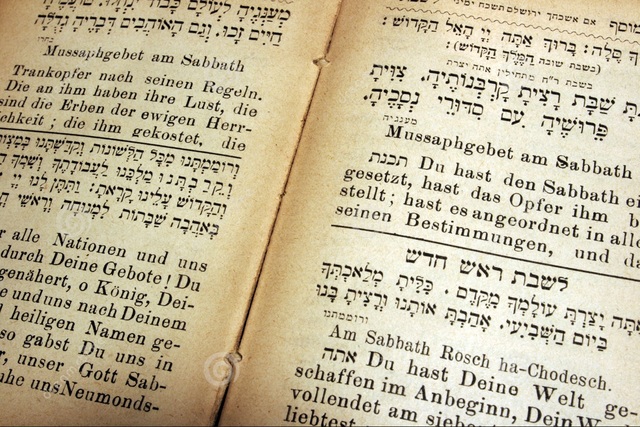 מוסף אם אשכחך ירושלם תשכח ימיני
סֶלָה: בָּרוּךְ אַתָּה יְיָ הָאֵל הַקָּדוֹשׁ:
(בשבת שובה הַמֶּלֶךְ הַקָּדוֹשׁ):
בשבת ר״ח מתחילין אתה יצרת
שַׁבָּת רָצִיתָ קָרְבְּנוֹתֶיהָ. צִוִּיתָ
פֵּרוּשֶׁיהָ עִם סִדּוּרֵי נְסָכֶיהָ.
מענגיה
Mussaphgebet am Sabbath
תכנת Du hast den Sabbath ei
gesetzt, hast das Opfer ihm b
stellt; hast es angeordnet in alle
seinen Bestimmungen, und da
לשבת ראש חדש
אַתָּה יָצַרְתָּ עוֹלָמְךָ מִקֶּדֶם. כִּלִּיתָ מְלַאכְתְּךָ
בַּיּוֹם הַשְּׁבִיעִי. אָהַבְתָּ אוֹתָנוּ וְרָצִיתָ בָּנוּ
ורוממתנו
Am Sabbath Rosch ha-Chodesch.
אתה Du hast Deine Welt ge-
schaffen im Anbeginn, Dein W
vollendet am sieben
liebtest
מְעַנְּגֶיהָ לְעוֹלָם כָּבוֹד יִנְחָלוּ.
חַיִּים זָכוּ. וְגַם הָאוֹהֲבִים דְּבָרֶיהָ גְּדֻלָּה
בחרו
Mussaphgebet am Sabbath
Trankopfer nach seinen Regeln.
Die an ihm haben ihre Lust, die
sind die Erben der ewigen Herr-
lichkeit; die ihm gekostet, die
וְרוֹמַמְתָּנוּ מִכָּל הַלְּשׁוֹנוֹת וְקִדַּשְׁתָּנוּ בְּמִצְוֹ
וְקֵרַבְתָּנוּ מַלְכֵּנוּ לַעֲבוֹדָתֶךָ וְשִׁמְךָ הַ
וְהַקָּדוֹשׁ עָלֵינוּ קָרָאתָ: וַתִּתֶּן לָנוּ יְיָ
בְּאַהֲבָה שַׁבָּתוֹת לִמְנוּחָה וְרָאשֵׁי חֳ
r alle Nationen und uns
durch Deine Gebote! Du
genähert, o König, Dei-
e und uns nach Deinem
l heiligen Namen ge-
so gabst Du uns in
r, unser Gott Sab-
uhe uns Neumonds-